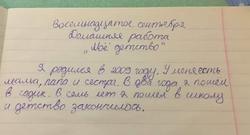 Восемнадцатое сентября
Домашняя работа
„Моё детство"
Я родился в 2009 году. У меня есть
мама, папа и сестра. В два года я пошёл
в садик. В семь лет я пошёл в школу
и детство закончилось.